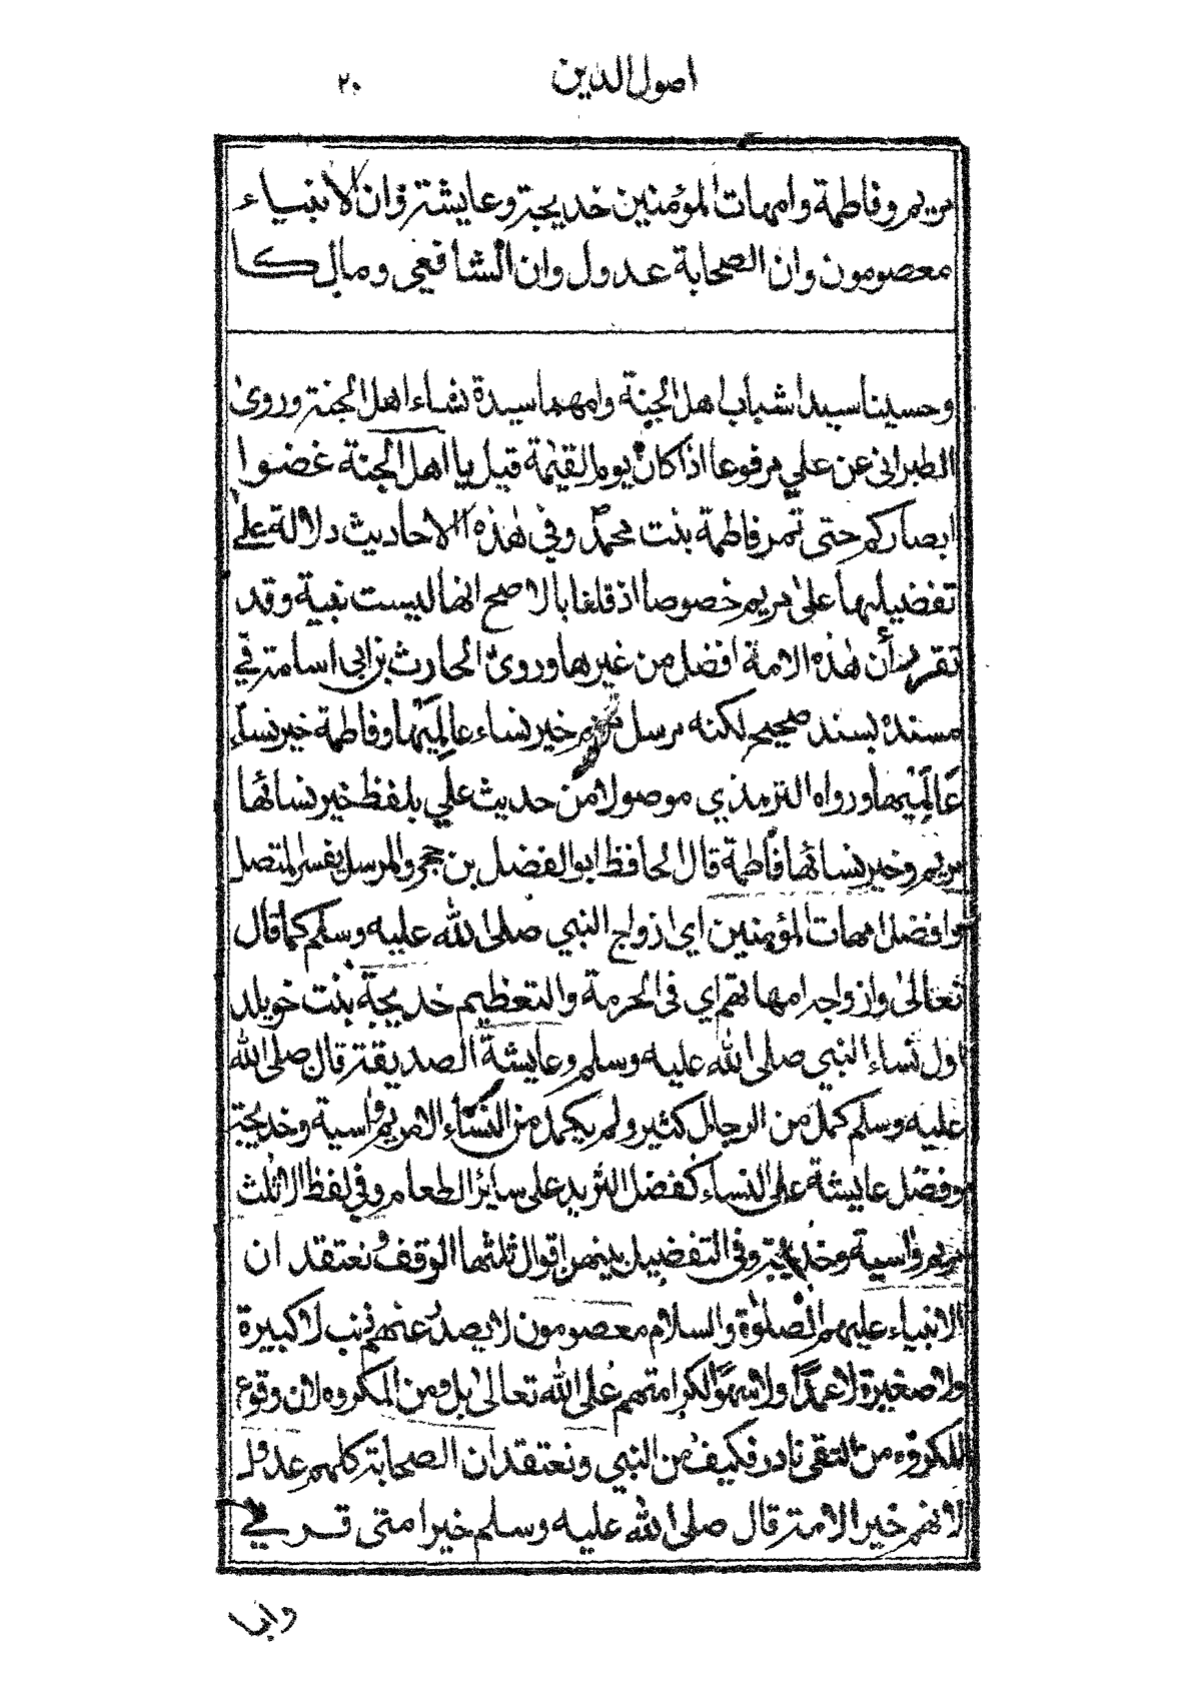 اصول الدين ٢٠
مريم وفاطمة وامهات المؤمنين خديجة وعايشة وان الانبياء
معصومون وان الصحابة عدول وان الشافعي ومالكا
وحسينا سيدا شباب اهل الجنة وامهما سيدة نساء اهل الجنة وروى
الطبراني عن علي مرفوعا اذا كان يوم القيمة قيل يا اهل الجنة غضوا
ابصاركم حتى تمر فاطمة بنت محمد وفي هذه الاحاديث دلالة على
تفضيلها على مريم خصوصا اذ قلنا بالاصح انها ليست نبية وقد
تقرر أن هذه الامة افضل من غيرها وروى الحارث بن ابي اسامة في
مسنده بسند صحيح لكنه مرسل مريم خير نساء عالمها وفاطمة خير نساء
عالمها ورواه الترمذي موصولا من حديث علي بلفظ خير نسائها
مريم وخير نسائها فاطمة قال الحافظ ابو الفضل بن حجر والمرسل يفسر المتصل
وافضل امهات المؤمنين اي ازواج النبي صلى الله عليه وسلم كما قال
تعالى وازواجه امهاتهم اي في الحرمة والتعظيم خديجة بنت خويلد
اول نساء النبي صلى الله عليه وسلم وعايشة الصديقة قال صلى الله
عليه وسلم كمل من الرجال كثير ولم يكمل من النساء الا مريم واسية وخديجة
وفضل عايشة على النساء كفضل الثريد على سائر الطعام وفي لفظ الا ثلث
مريم واسية وخديجة وفي التفضيل بينهن اقوال ثلثها الوقف ونعتقد ان
الانبياء عليهم الصلوة والسلام معصومون لا يصدر عنهم ذنب لا كبيرة
ولا صغيرة لا عمدا ولا سهوا لكرامتهم على الله تعالى بل ومن المكروه لان وقوع
المكروه من التقي نادر فكيف من النبي ونعتقد ان الصحابة كلهم عدول
لانهم خير الامة قال صلى الله عليه وسلم خير امتي قرني